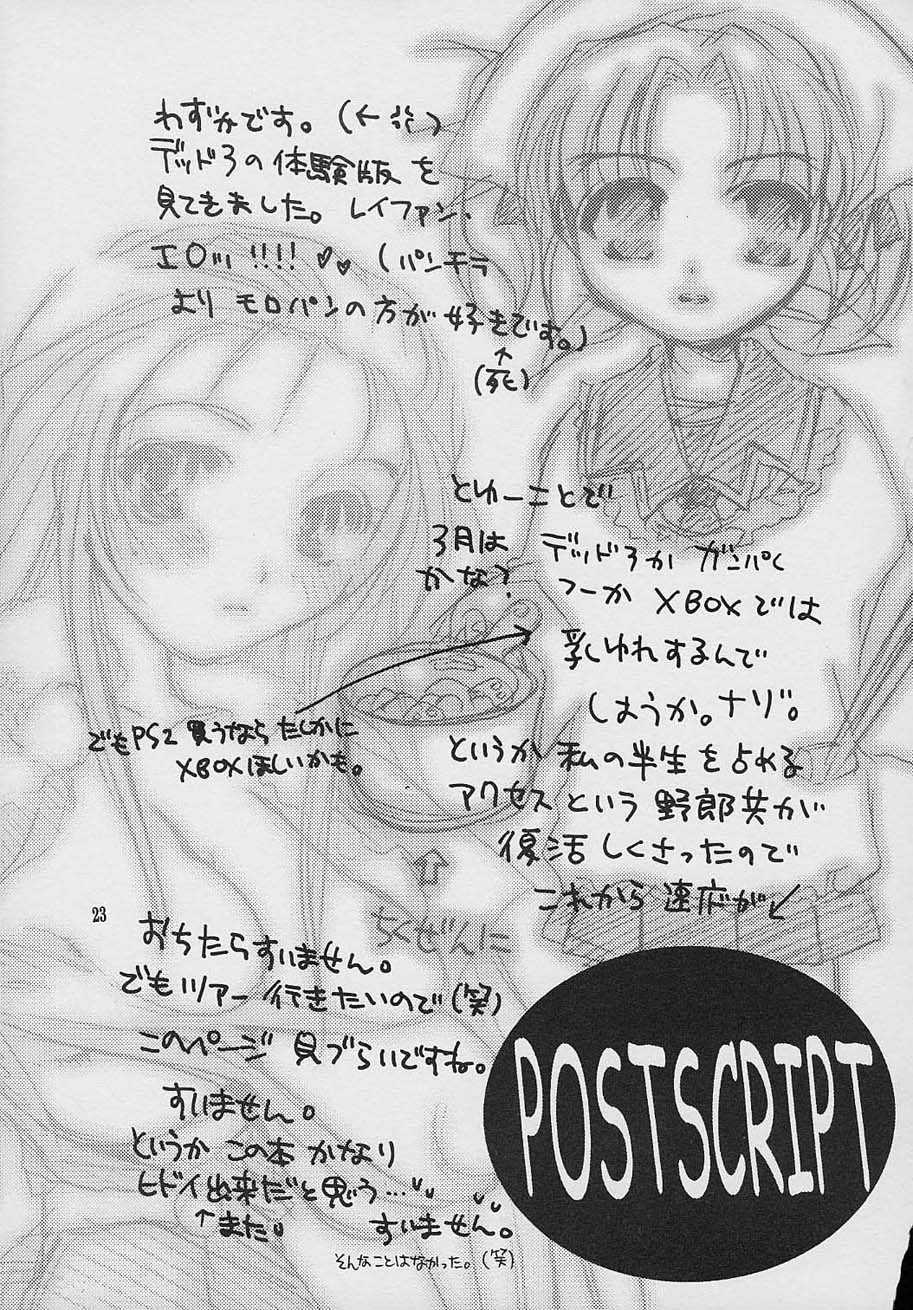 わずかです。(←
デッド3の体験版を
見てきました。レイファン、
エロッ!!!!♥♥(パンチラ
よりモロパンの方が好きです。)
↑
(死)
とゆーことで
3月は デッド3か ガンパく
かな? つーか XBOXでは
乳ゆれするんで
しょうか。ナゾ。
でもPS2買うならたしかに
XBOXほしいかも。
というか私の半生を占める
アクセスという野郎共が
復活しくさったので
これから 速度が↙
ちくぜんに
23
おちたらすいません。
でもツアー行きたいので(笑)
このページ 見づらいですね。
すいません。
というか この本 かなり
ヒドイ出来だと思う…
↑また すいません。
そんなことはなかった。(笑)
POSTSCRIPT